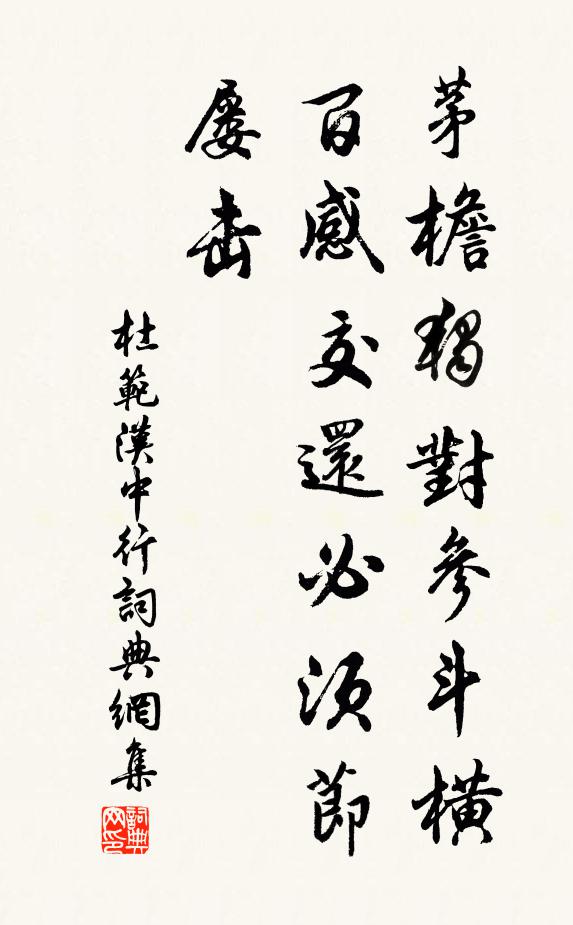 茅檐獨對參斗橫
百感交還必須節
屢击
杜範漢中行詞典網集
詞典
网印